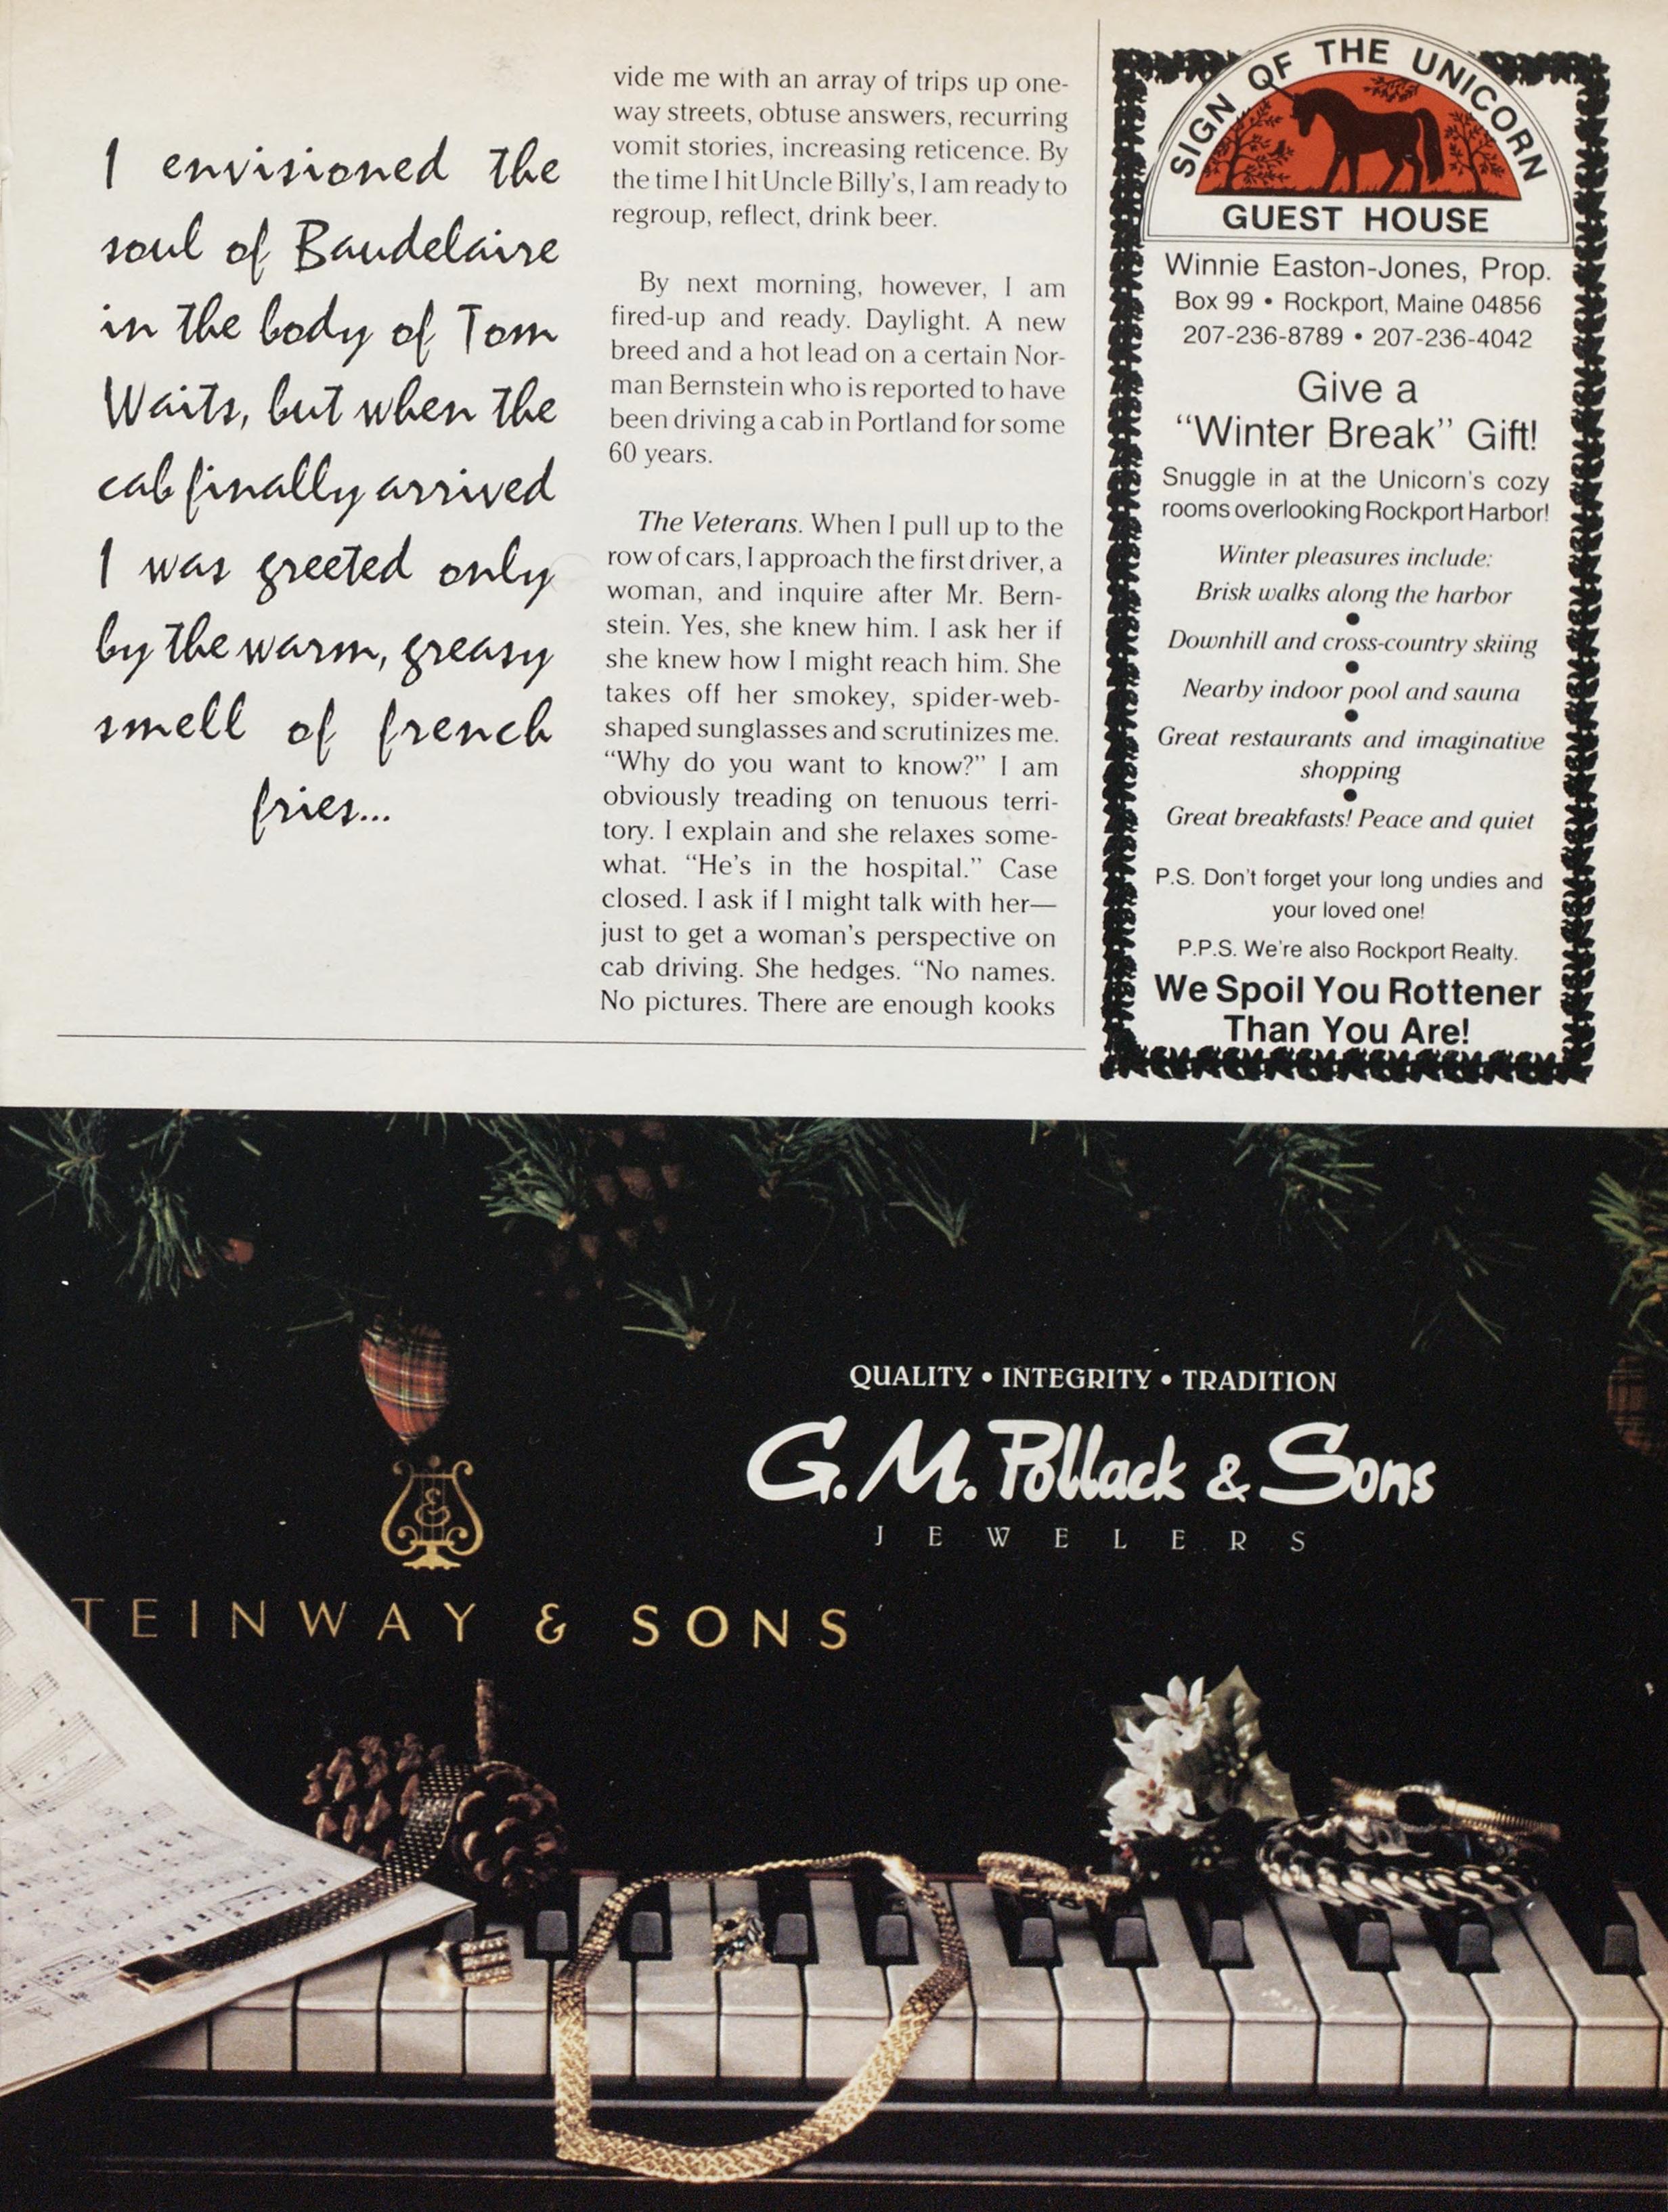 I envisioned the
soul of Baudelaire
in the body of Tom
Waits, but when the
cab finally arrived
I was greeted only
by the warm, greasy
smell of french
fries...
vide me with an array of trips up one-
way streets, obtuse answers, recurring
vomit stories, increasing reticence. By
the time I hit Uncle Billy's, I am ready to
regroup, reflect, drink beer.
By next morning, however, I am
fired-up and ready. Daylight. A new
breed and a hot lead on a certain Nor-
man Bernstein who is reported to have
been driving a cab in Portland for some
60 years.
The Veterans. When I pull up to the
row of cars, I approach the first driver, a
woman, and inquire after Mr. Bern-
stein. Yes, she knew him. I ask her if
she knew how I might reach him. She
takes off her smokey, spider-web-
shaped sunglasses and scrutinizes me.
“Why do you want to know?” I am
obviously treading on tenuous terri-
tory. I explain and she relaxes some-
what. “He's in the hospital.” Case
closed. I ask if I might talk with her—
just to get a woman's perspective on
cab driving. She hedges. “No names.
No pictures. There are enough kooks
SIGN OF THE UNICORN
GUEST HOUSE
Winnie Easton-Jones, Prop.
Box 99 • Rockport, Maine 04856
207-236-8789 • 207-236-4042
Give a
“Winter Break” Gift!
Snuggle in at the Unicorn's cozy
rooms overlooking Rockport Harbor!
Winter pleasures include:
Brisk walks along the harbor
•
Downhill and cross-country skiing
•
Nearby indoor pool and sauna
•
Great restaurants and imaginative
shopping
•
Great breakfasts! Peace and quiet
P.S. Don't forget your long undies and
your loved one!
P.P.S. We're also Rockport Realty.
We Spoil You Rottener
Than You Are!
QUALITY • INTEGRITY • TRADITION
G.M. Pollack & Sons
JEWELERS
TEINWAY & SONS